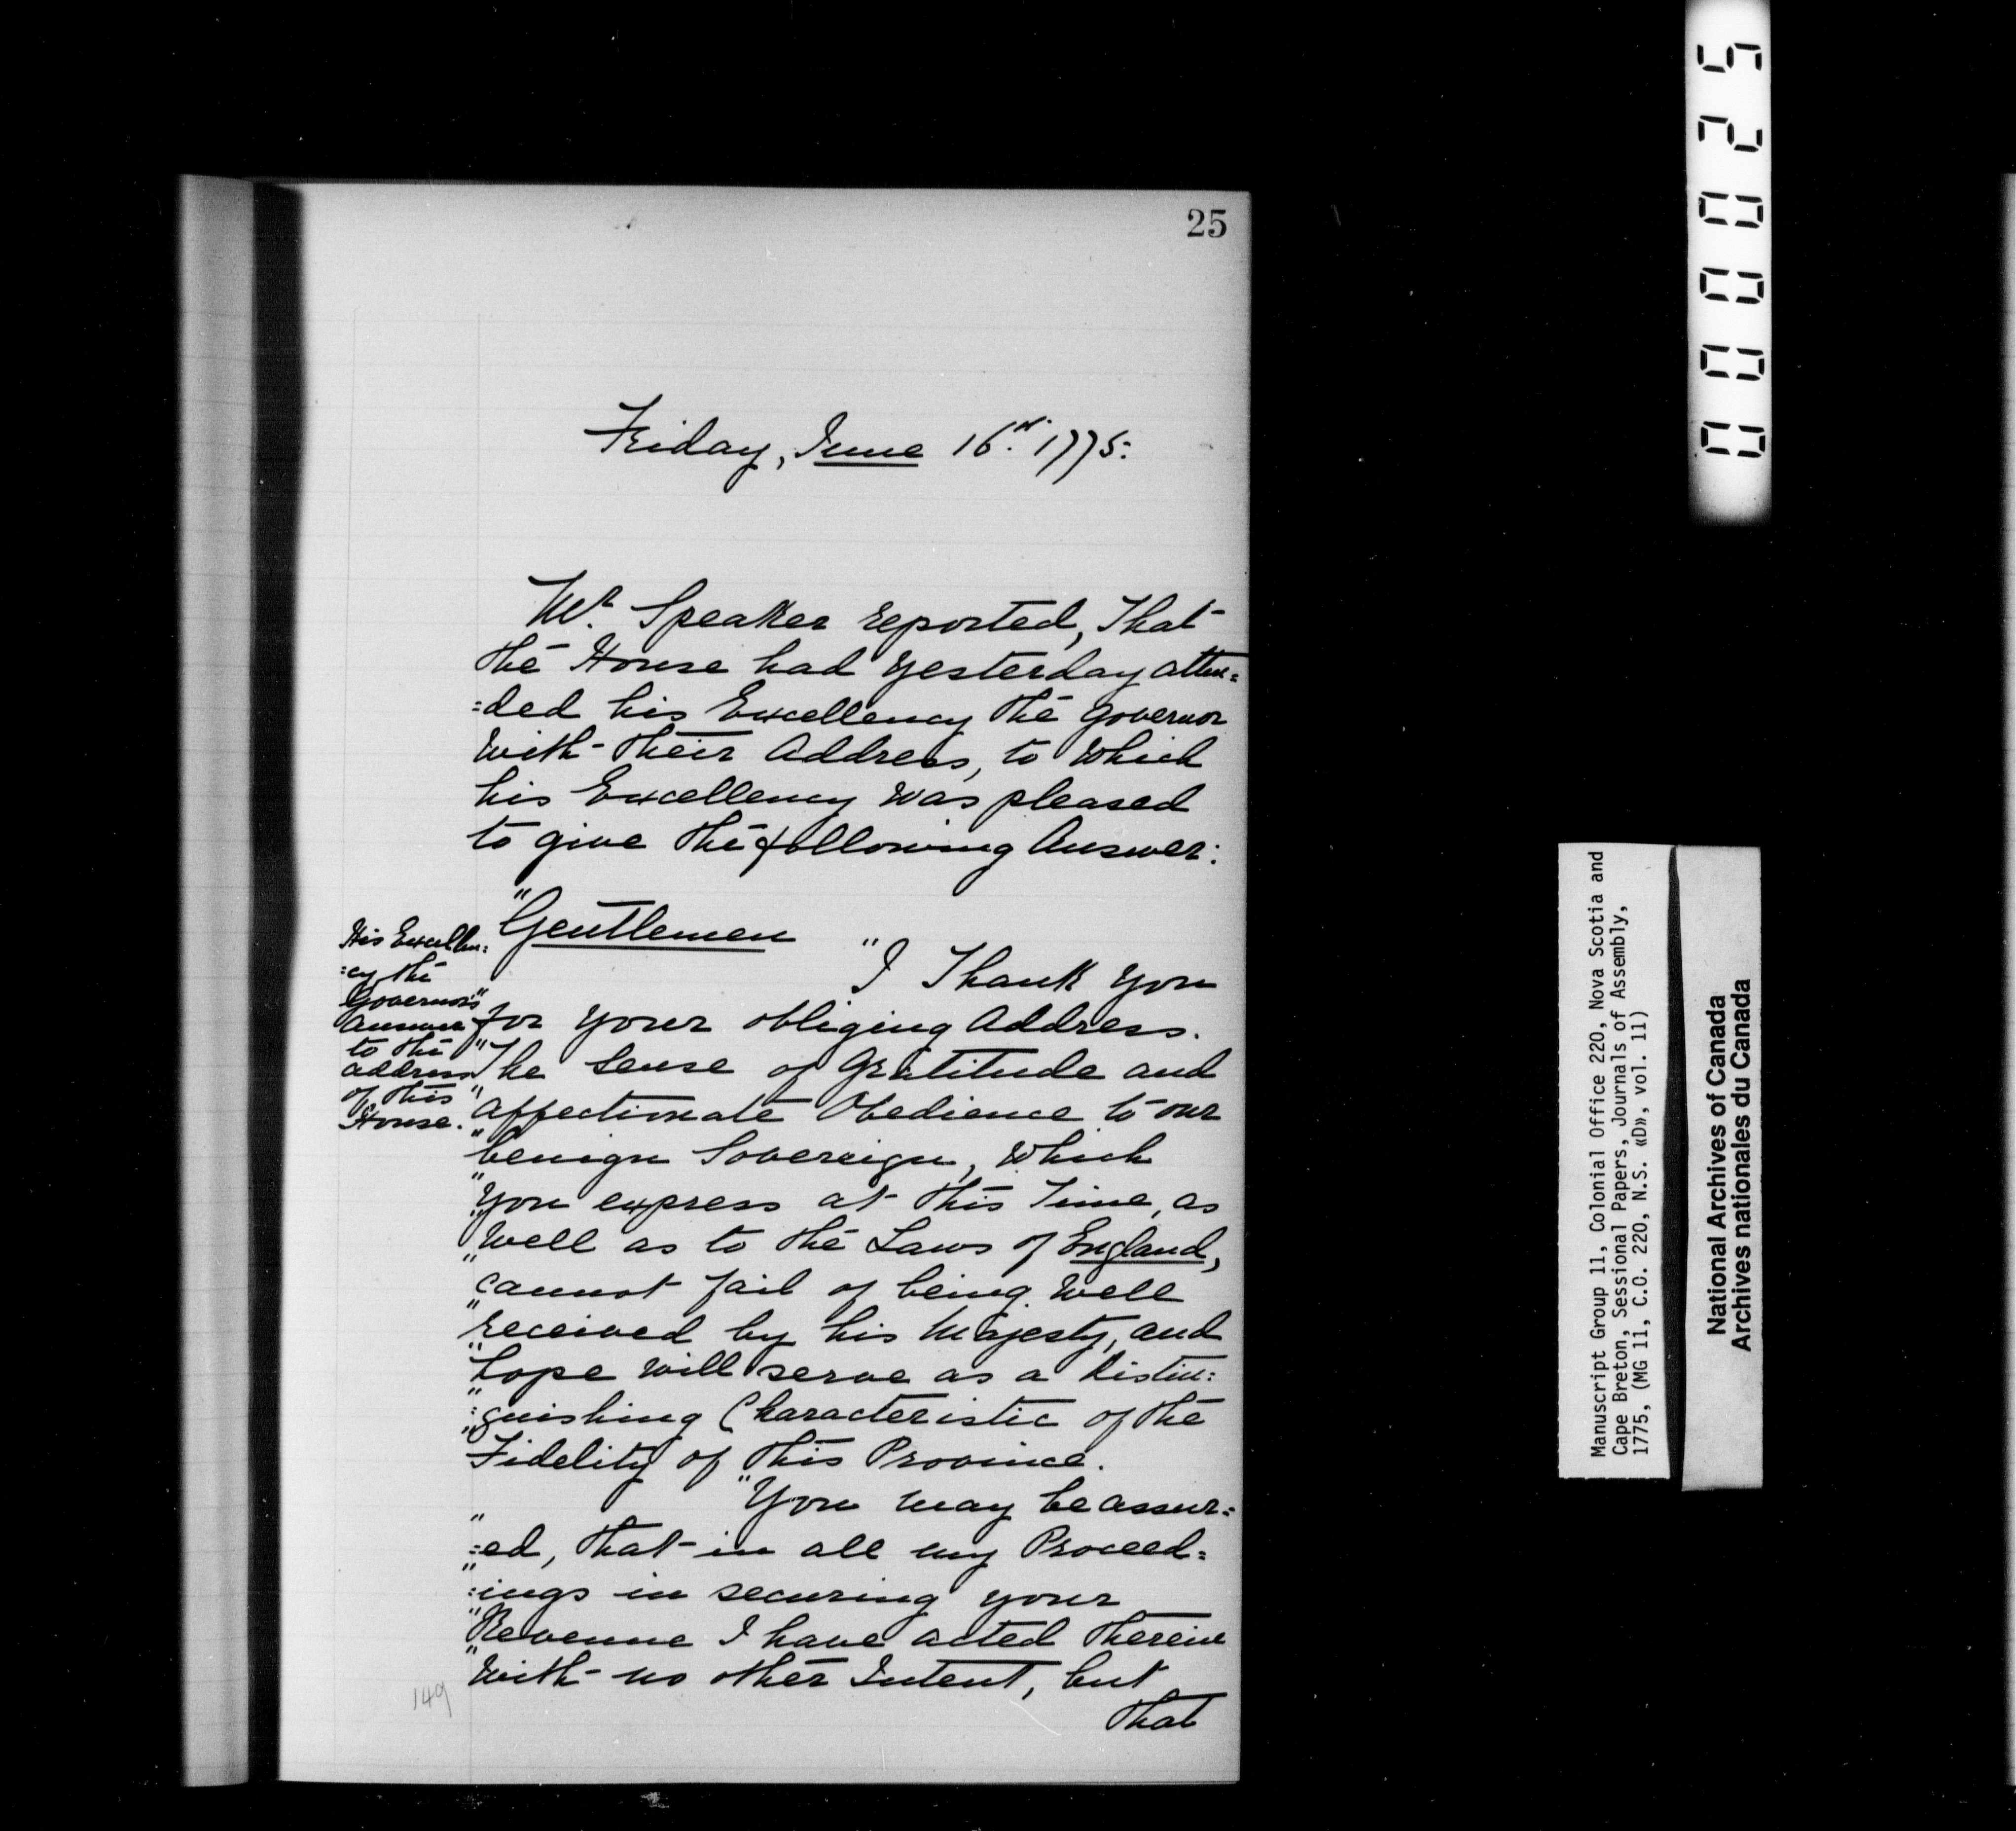 25
Friday, June 16th. 1775:
Mr. Speaker reported, That
the House had yesterday atten=
=ded his Excellency the Governor
with their Address, to which
his Excellency was pleased
to give the following Answer:
"Gentlemen
"I Thank you
"for your obliging Address.
"The sense of Gratitude and
"affectionate Obedience to our
"benign Sovereign, which
"you express at this Time, as
"well as to the Laws of England,
"cannot fail of being well
"received by his Majesty, and
"hope will serve as a distin:
":guishing Characteristic of the
"Fidelity of this Province.
"You may be assur=
"=ed, that in all my Proceed=
":ings in securing your
"Revenue I have acted therein
"with no other Intent, but
that
His Excellen:
:cy the
Governor's
answer
to the
address
of this
House.
149
00025
Manuscript Group 11, Colonial Office 220, Nova Scotia and
Cape Breton, Sessional Papers, Journals of Assembly,
1775, (MG 11, C.O. 220, N.S. «D», vol. 11)
National Archives of Canada
Archives nationales du Canada